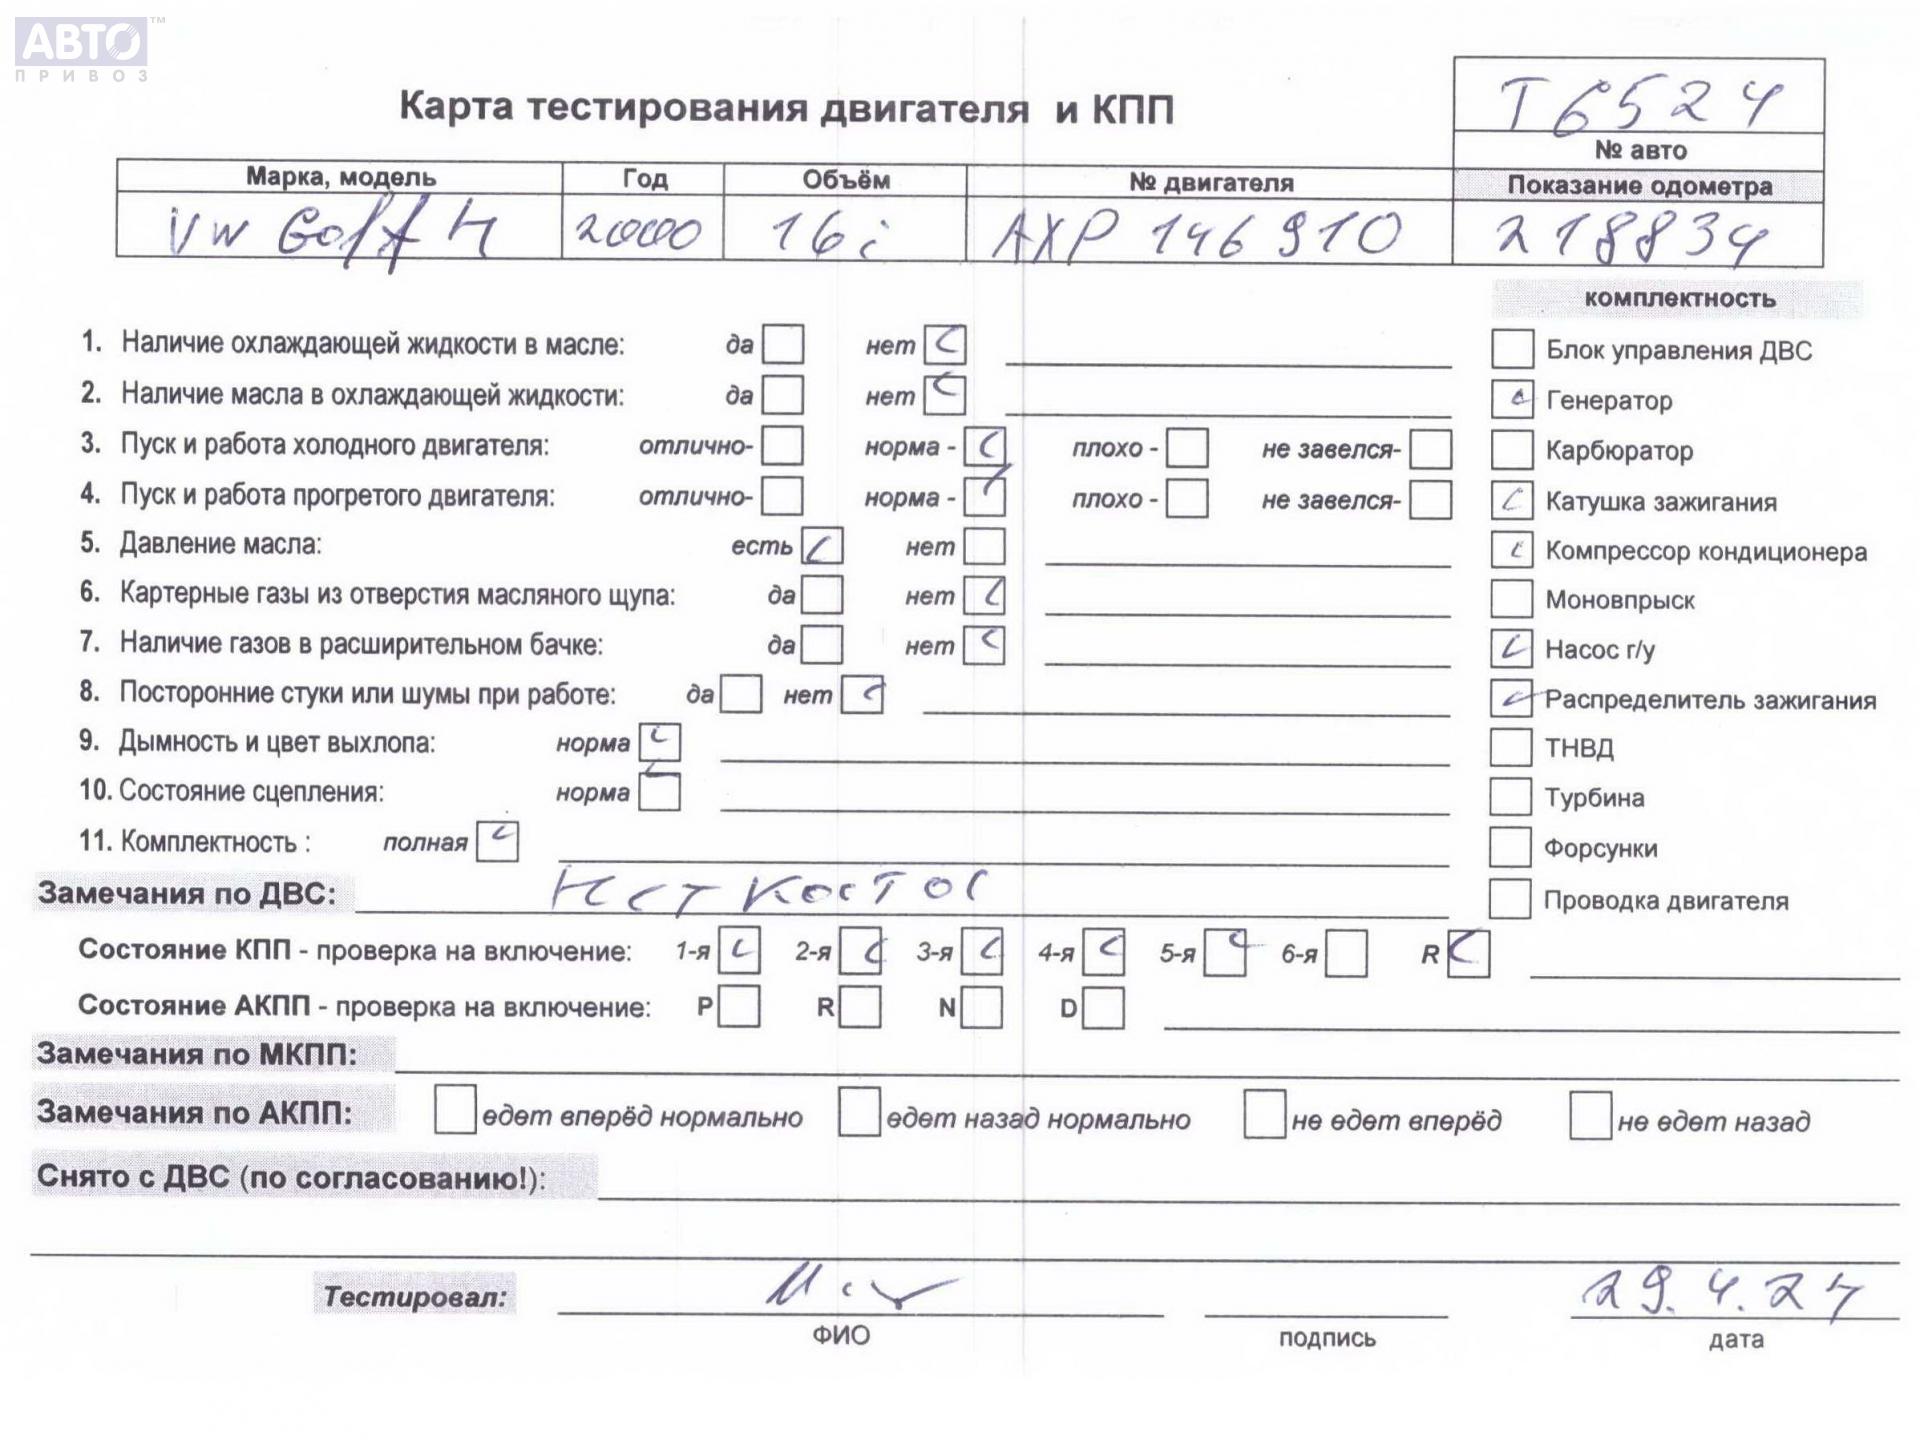 АВТО™
ПРИВОЗ
Карта тестирования двигателя и КПП
Т6524
№ авто
Марка, модель Год Объём № двигателя Показание одометра
VW Golf 4 2000 16i AXP 146910 218834
комплектность
1. Наличие охлаждающей жидкости в масле: да нет Блок управления ДВС
2. Наличие масла в охлаждающей жидкости: да нет Генератор
3. Пуск и работа холодного двигателя: отлично- норма - плохо - не завелся- Карбюратор
4. Пуск и работа прогретого двигателя: отлично- норма - плохо - не завелся- Катушка зажигания
5. Давление масла: есть нет Компрессор кондиционера
6. Картерные газы из отверстия масляного щупа: да нет Моновпрыск
7. Наличие газов в расширительном бачке: да нет Насос г/у
8. Посторонние стуки или шумы при работе: да нет Распределитель зажигания
9. Дымность и цвет выхлопа: норма ТНВД
10. Состояние сцепления: норма Турбина
11. Комплектность : полная Форсунки
Замечания по ДВС: Проводка двигателя
Состояние КПП - проверка на включение: 1-я 2-я 3-я 4-я 5-я 6-я R
Состояние АКПП - проверка на включение: P R N D
Замечания по МКПП:
Замечания по АКПП: едет вперёд нормально едет назад нормально не едет вперёд не едет назад
Снято с ДВС (по согласованию!):
Тестировал: 29.4.24
ФИО подпись дата